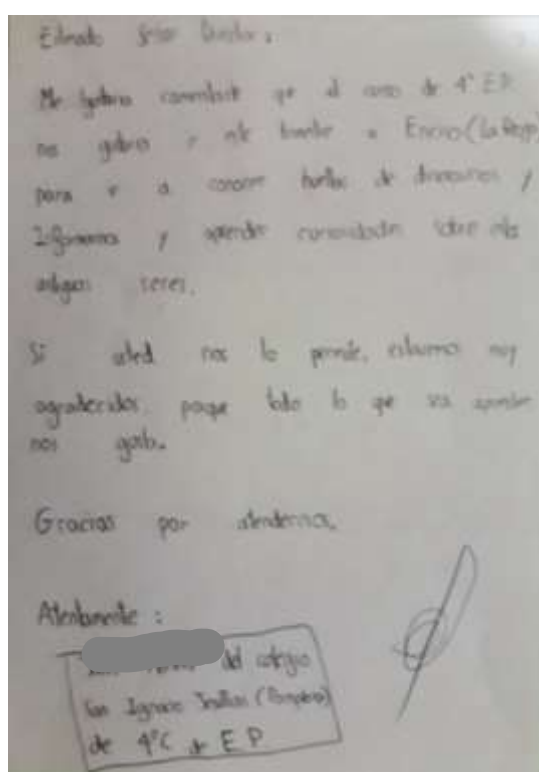 Estimado Señor Director:
Me gustaría comentarle que al curso de 4º E.P.
nos gustaría ir este trimestre a Enciso (La Rioja)
para ir a conocer huellas de dinosaurios y
informarnos y aprender curiosidades sobre estos
antiguos seres.
Si usted nos lo permite, estaremos muy
agradecidos, porque todo lo que sea aprender
nos gusta.
Gracias por atendernos.
Atentamente:
del colegio
San Ignacio Jesuitas (Pamplona)
de 4ºC de E.P.